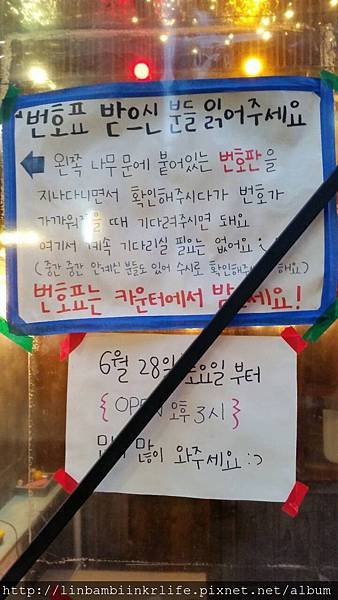 번호표 받으신 분들 읽어주세요
왼쪽 나무문에 붙어있는 번호판을
지나다니면서 확인해주시다가 번호가
가까워졌을 때 기다려주시면 돼요
여기서 계속 기다리실 필요는 없어요
(중간 중간 안계신 분들도 있어 수시로 확인해 해요)
번호표는 카운터에서
6월 28일 토요일 부터
{ OPEN 오후 3시 }
많이 와주세요 :)
http://linbambiinkrlife.pixnet.net/album